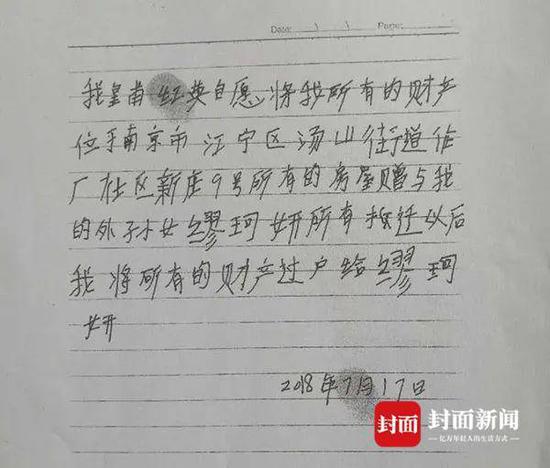 Date: / / Page:
我皇甫红英自愿将我所有的财产
位于南京市江宁区汤山街道作
厂社区新庄9号所有的房屋赠与我
的外孙女缪珂妍所有拆迁以后
我将所有的财产过户给缪珂
妍
2018年7月17日
封面 封面新闻
—亿万年轻人的生活方式—